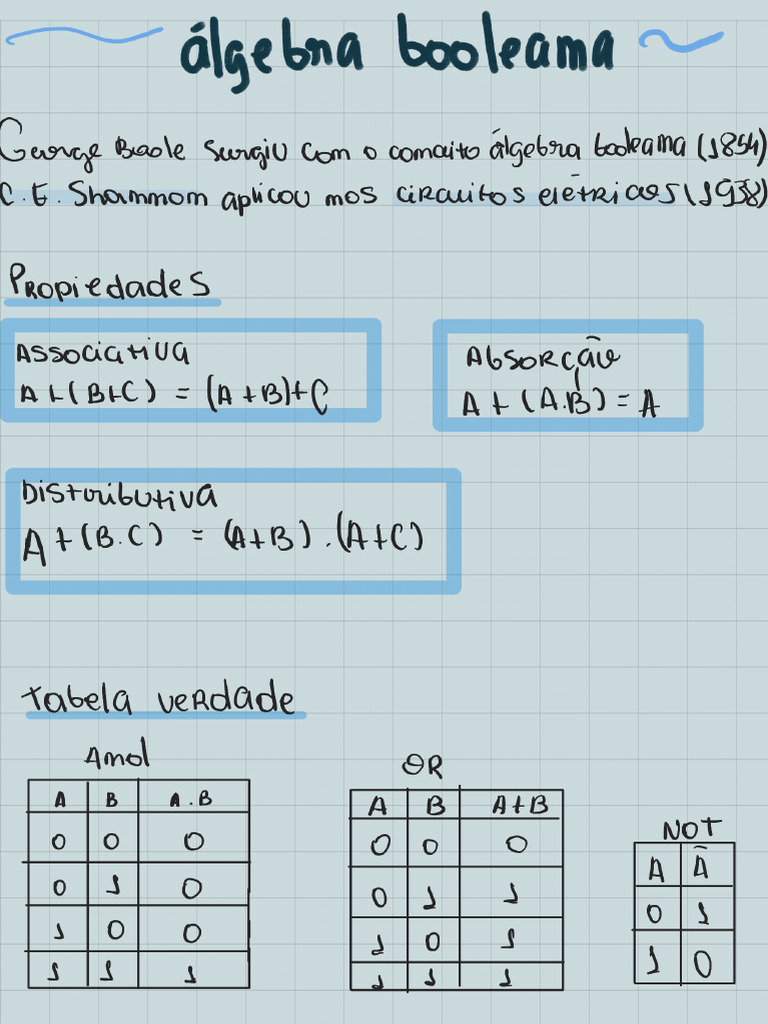 álgebra booleana
George Boole surgiu com o conceito álgebra booleana (1854)
C.E. Shannon aplicou nos circuitos elétricos (1938)
Propiedades
Associativa
A+(B+C) = (A+B)+C
Absorção
A + (A.B) = A
Distributiva
A+(B.C) = (A+B).(A+C)
Tabela verdade
And
A B A.B
0 0 0
0 1 0
1 0 0
1 1 1
OR
A B A+B
0 0 0
0 1 1
1 0 1
1 1 1
NOT
A Ā
0 1
1 0